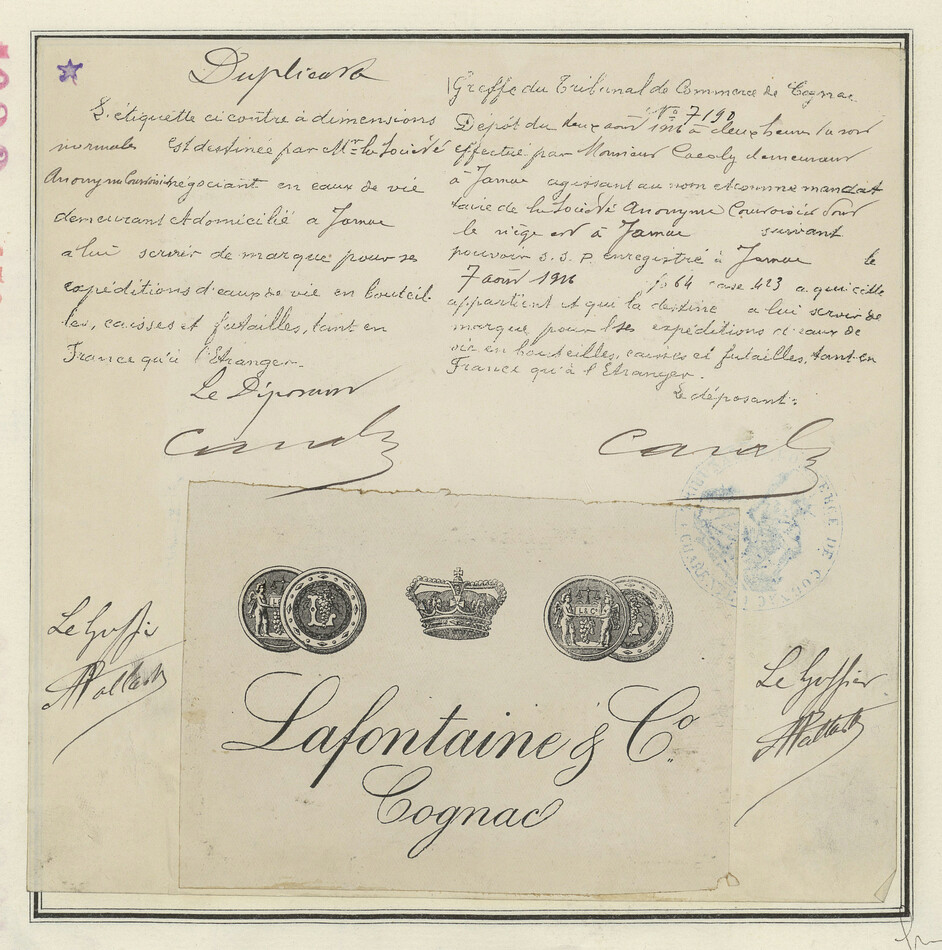 Duplicata
L'étiquette ci contre à dimensions
normales est destinée par Mr la Société
Anonyme Courvoisier négociant en eaux de vie
demeurant et domicilié à Jarnac
a lui servir de marque pour ses
expéditions d'eaux de vie en bouteil-
les, caisses et futailles, tant en
France qu'à l'Etranger.
Le Déposant
Greffe du Tribunal de Commerce de Cognac
No 7190
Dépôt du deux août 1926 à deux heures du soir
effectué par Monsieur demeurant
à Jarnac agissant au nom et comme mandat
taire de la Société Anonyme Courvoisier dont
le siège est à Jarnac suivant
pouvoir s. s. p. enregistré à Jarnac le
7 août 1926 fo 64 case 423 a qui cette
appartient et qui la destine a lui servir de
marque pour ses expéditions d'eaux de
vie en bouteilles, caisses et futailles, tant en
France qu'à l'Etranger.
Le déposant:
COMMERCE DE COGNAC
L&C
Lafontaine & Co.
Cognac
Le Greffier
Le Greffier